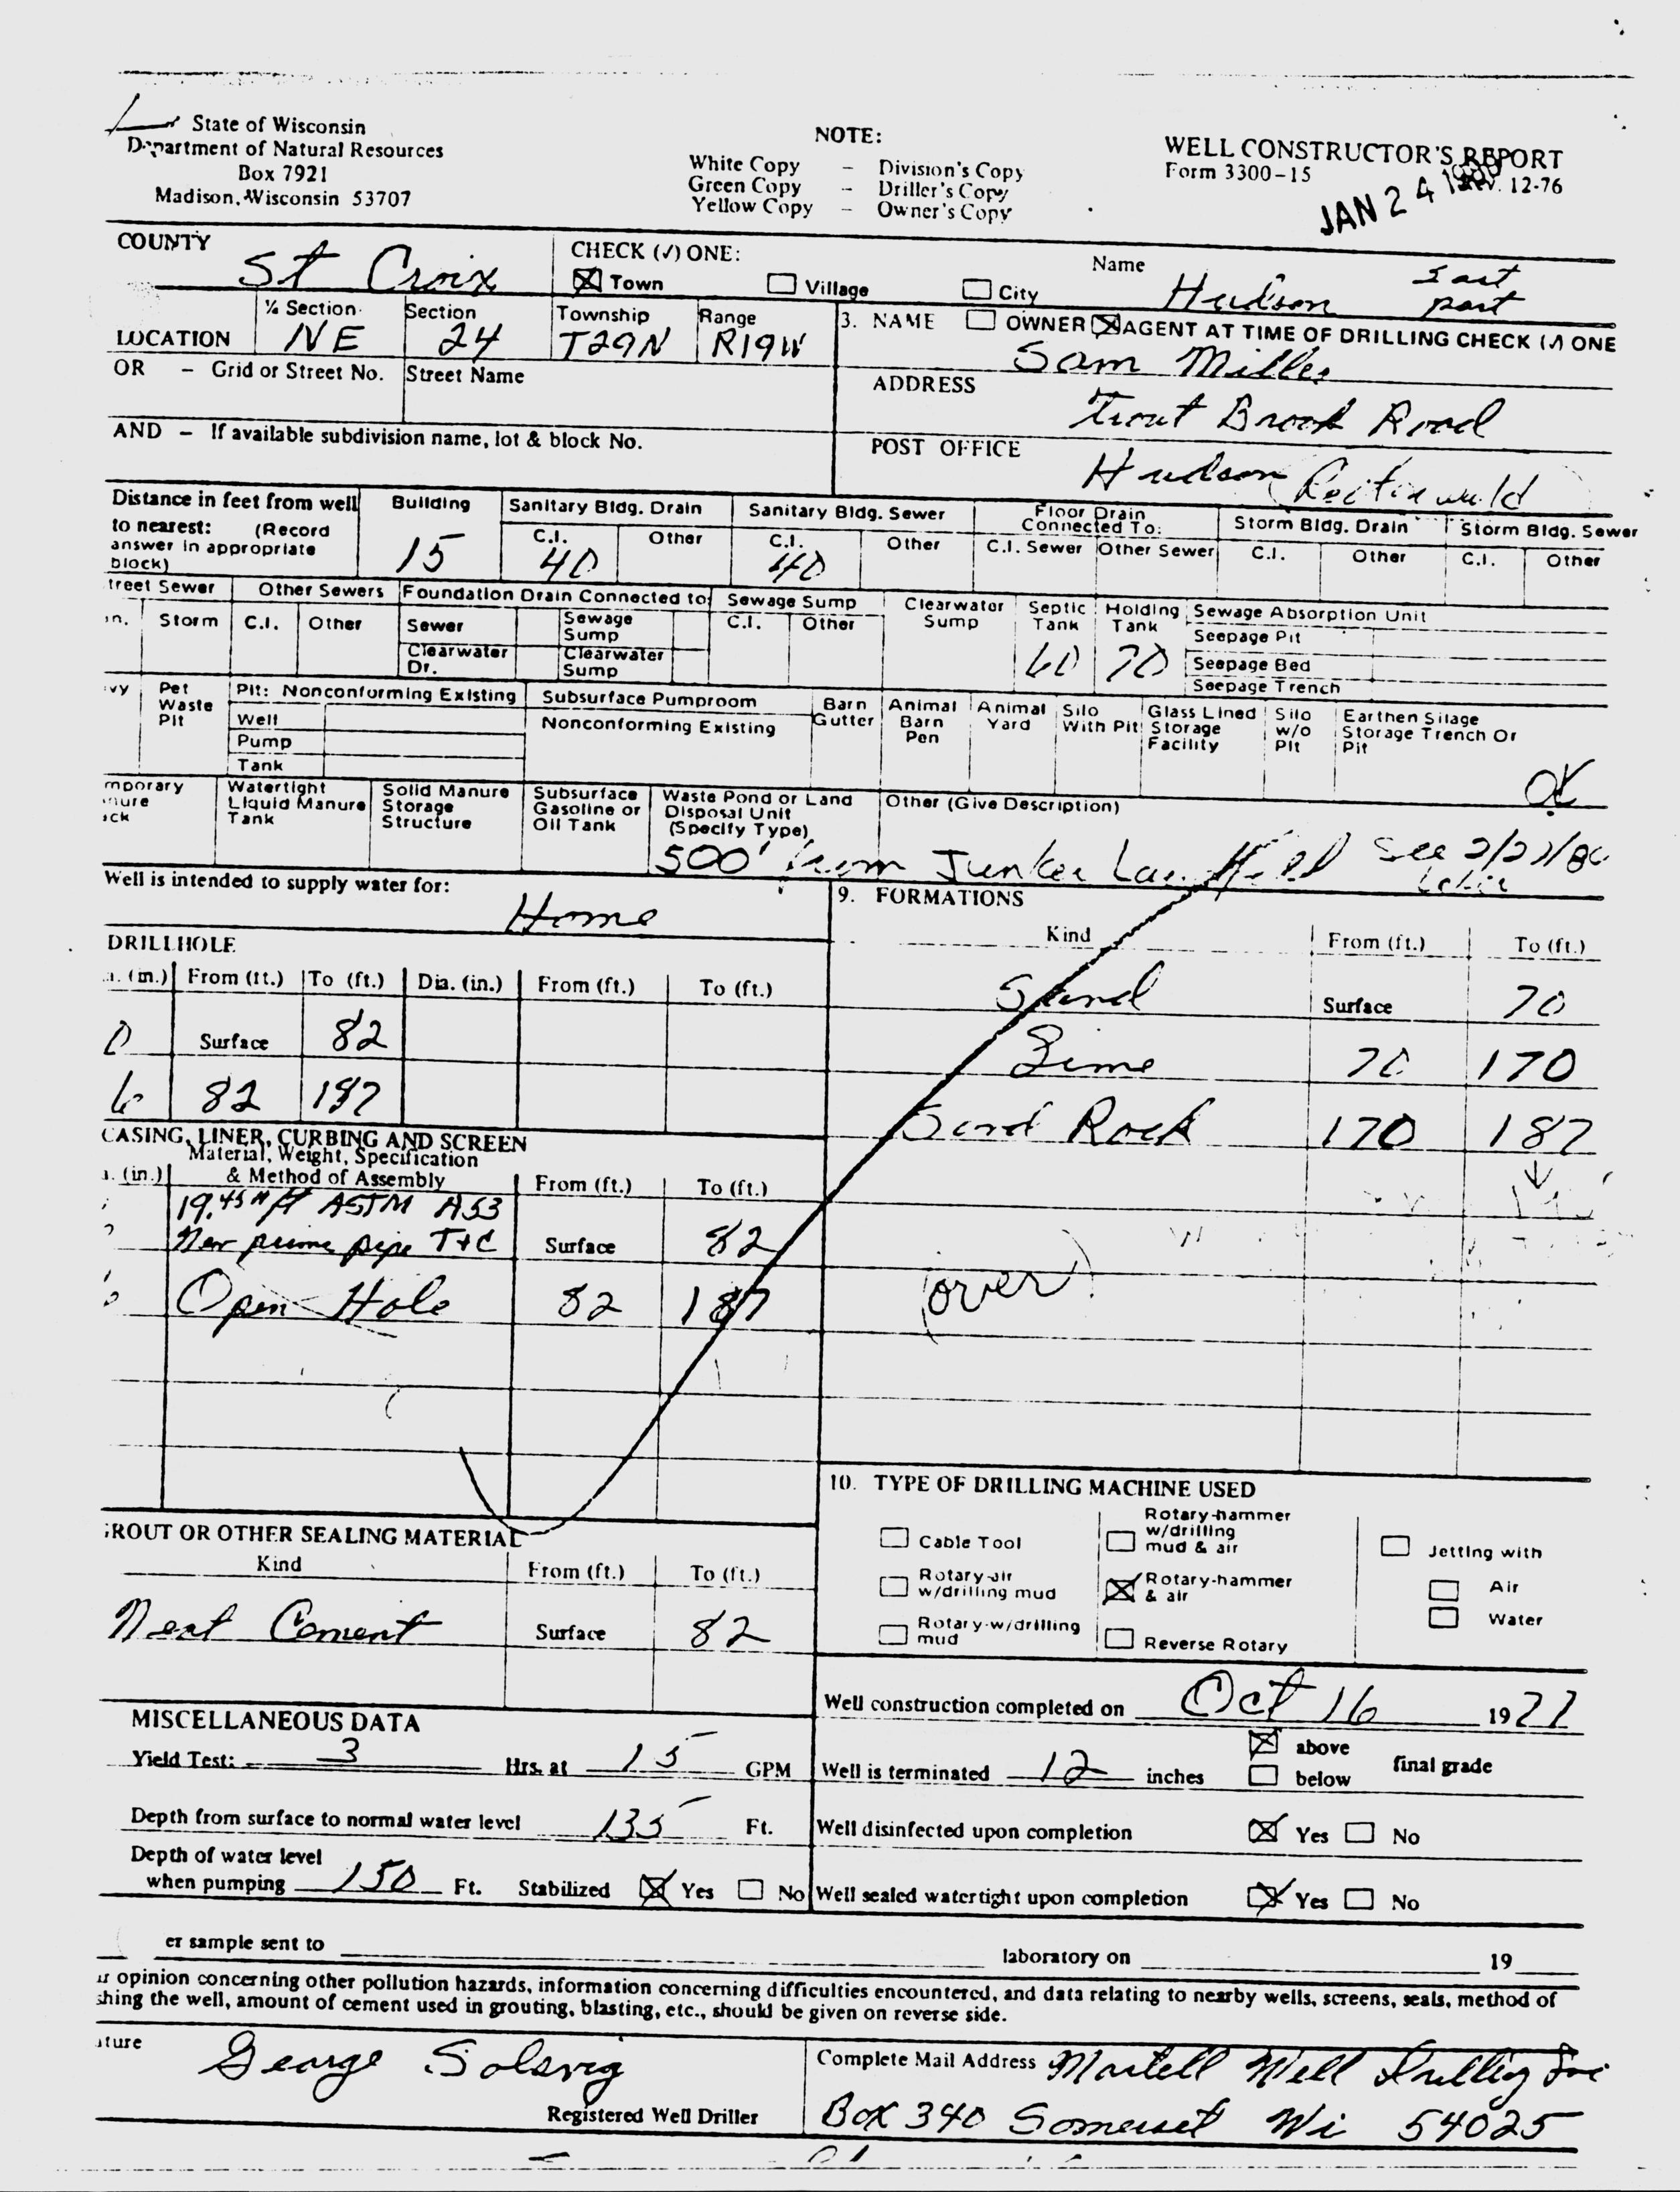 State of Wisconsin
Department of Natural Resources
Box 7921
Madison, Wisconsin 53707
NOTE:
White Copy – Division's Copy
Green Copy – Driller's Copy
Yellow Copy – Owner's Copy
WELL CONSTRUCTOR'S REPORT
Form 3300-15 Rev. 12-76
JAN 24
COUNTY St Croix
CHECK (√) ONE:
☒ Town ☐ Village ☐ City
Name Hudson East part
LOCATION
¼ Section NE
Section 24
Township T29N
Range R19W
3. NAME ☐ OWNER ☒ AGENT AT TIME OF DRILLING CHECK (√) ONE
Sam Miller
OR – Grid or Street No. Street Name
ADDRESS Trout Brook Road
AND – If available subdivision name, lot & block No.
POST OFFICE Hudson
Distance in feet from well to nearest: (Record answer in appropriate block)
Building 15
Sanitary Bldg. Drain C.I. 40 Other
Sanitary Bldg. Sewer C.I. 40 Other
Floor Drain Connected To: C.I. Sewer Other Sewer
Storm Bldg. Drain C.I. Other
Storm Bldg. Sewer C.I. Other
treet Sewer Storm
Other Sewers C.I. Other
Foundation Drain Connected to
Sewer Sewage Sump
Clearwater Dr. Clearwater Sump
Sewage Sump C.I. Other
Clearwater Sump
Septic Tank 60
Holding Tank 70
Sewage Absorption Unit
Seepage Pit
Seepage Bed
Seepage Trench
vy Pet Waste Pit
Pit: Nonconforming Existing
Well
Pump
Tank
Subsurface Pumproom
Nonconforming Existing
Barn Gutter
Animal Barn Pen
Animal Yard
Silo With Pit
Glass Lined Storage Facility
Silo w/o Pit
Earthen Silage Storage Trench Or Pit
OK
mporary nure ack
Watertight Liquid Manure Tank
Solid Manure Storage Structure
Subsurface Gasoline or Oil Tank
Waste Pond or Land Disposal Unit (Specify Type)
Other (Give Description)
500' from Junker Landfill See
Well is intended to supply water for:
Home
9. FORMATIONS
Kind From (ft.) To (ft.)
Sand Surface 70
Lime 70 170
Sand Rock 170 187
(over)
DRILLHOLE
a. (in.) From (ft.) To (ft.) Dia. (in.) From (ft.) To (ft.)
0 Surface 82
6 82 187
CASING, LINER, CURBING AND SCREEN
Material, Weight, Specification
a. (in.) & Method of Assembly From (ft.) To (ft.)
19.45 #/ft ASTM A53
New prime pipe T+C Surface 82
Open Hole 82 187
10. TYPE OF DRILLING MACHINE USED
☐ Cable Tool
☐ Rotary-air w/drilling mud
☐ Rotary-w/drilling mud
☐ Rotary-hammer w/drilling mud & air
☒ Rotary-hammer & air
☐ Reverse Rotary
☐ Jetting with
☐ Air
☐ Water
GROUT OR OTHER SEALING MATERIAL
Kind From (ft.) To (ft.)
Neat Cement Surface 82
MISCELLANEOUS DATA
Yield Test: 3 Hrs. at 15 GPM
Depth from surface to normal water level 135 Ft.
Depth of water level when pumping 150 Ft. Stabilized ☒ Yes ☐ No
Well construction completed on Oct 16 1977
Well is terminated 12 inches ☒ above ☐ below final grade
Well disinfected upon completion ☒ Yes ☐ No
Well sealed watertight upon completion ☒ Yes ☐ No
er sample sent to laboratory on 19
ur opinion concerning other pollution hazards, information concerning difficulties encountered, and data relating to nearby wells, screens, seals, method of
shing the well, amount of cement used in grouting, blasting, etc., should be given on reverse side.
ature George Solsvig
Registered Well Driller
Complete Mail Address Martell Well Drilling Inc
Box 340 Somerset Wi 54025